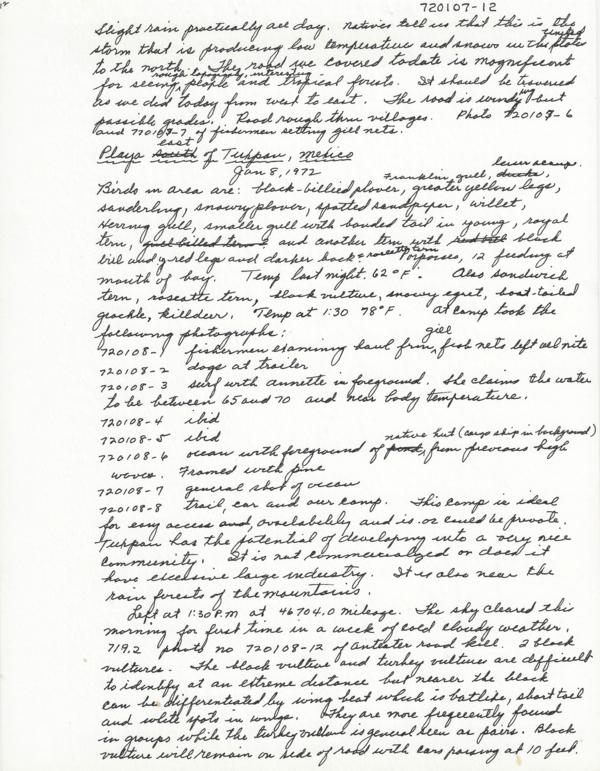 720107-12
Slight rain practically all day. Natives tell us that this is the
storm that is producing low temperature and snows in the United States
to the north. The road we covered to date is magnificent
for seeing rough topography, interesting people and tropical forests. It should be traversed
as we did today from west to east. The road is windy but
passible grades. Road rough thru villages. Photo 720108-6
and 770107-7 of fishermen setting gill nets.
Playa south east of Tuxpan, Mexico
Jan 8, 1972
Birds in area are: black-billied plover, Franklin gull, greater yellow legs, ducks, lesser scaup,
sanderling, snowy plover, spotted sandpiper, willet,
Herring gull, smaller gull with banded tail in young, royal
tern, gull billed tern? and another tern with red bill black
bill and red legs and darker back = roseatte tern Porpoises, 12 feeding at
mouth of bay. Temp last night. 62°F. Also sandwich
tern, roseatte tern, black vulture, snowy egret, boat-tailed
grackle, killdeer. Temp at 1:30 78°F. At camp took the
following photographs:
720108-1 fishermen examining haul from gill fish nets left all nite
720108-2 dogs at trailer
720108-3 surf with annette in foreground. She claims the water
to be between 65 and 70 and near body temperature.
720108-4 ibid
720108-5 ibid
720108-6 ocean with foreground of pond, native hut (cargo ship in background) from previous high
waves. Framed with pine
720108-7 general shot of ocean
720108-8 trail, car and our camp. This camp is ideal
for easy access and, availability and is or could be private.
Tuxpan has the potential of developing into a very nice
community. It is not commercialized or does it
have excessive large industry. It is also near the
rain forests of the mountains.
Left at 1:30 P.M at 46704.0 mileage. The sky cleared this
morning for first time in a week of cold cloudy weather.
719.2 photo no 720108-12 of anteater road kill. 2 black
vultures. The black vulture and turkey vulture are difficult
to identify at an extreme distance but nearer the black
can be differentiated by wing beat which is batlike, short tail
and white spots in wings. They are more frequently found
in groups while the turkey vulture is general seen as pairs. Black
vulture will remain on side of road with cars passing at 10 feet.